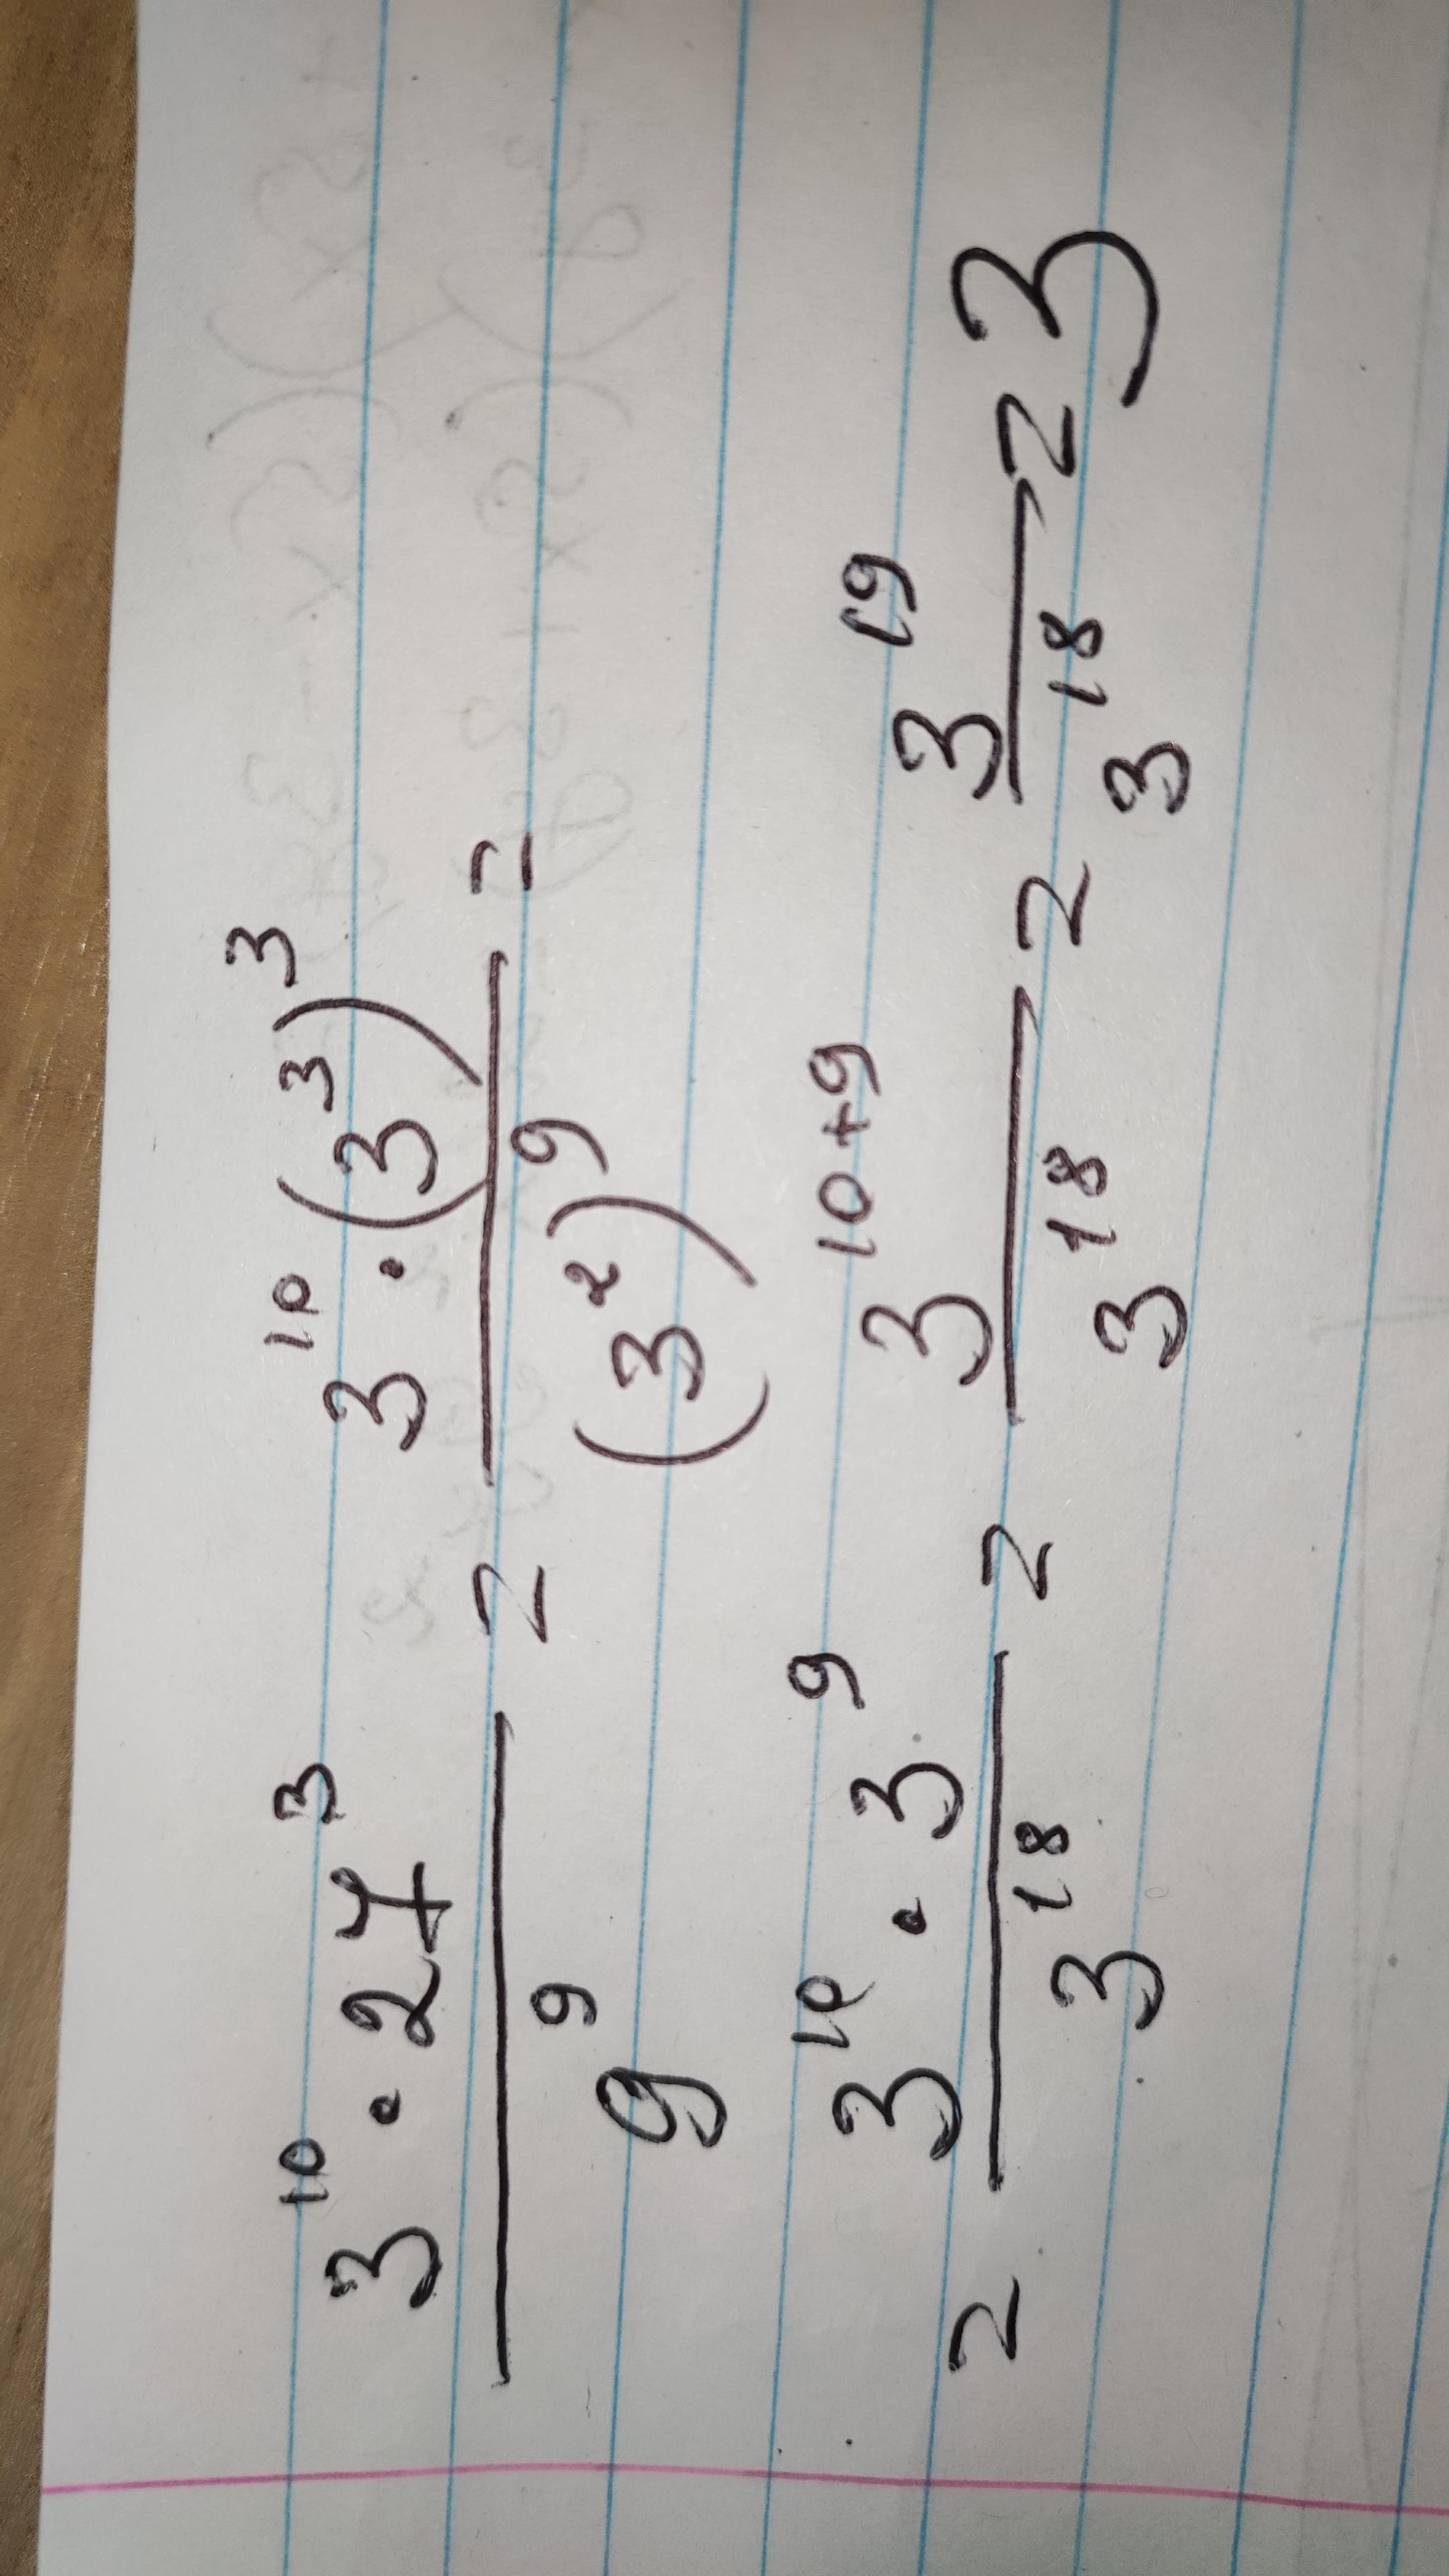 3^10 · 27^3 / 9^9 = 3^10 · (3^3)^3 / (3^2)^9 =
= 3^10 · 3^9 / 3^18 = 3^(10+9) / 3^18 = 3^19 / 3^18 = 3